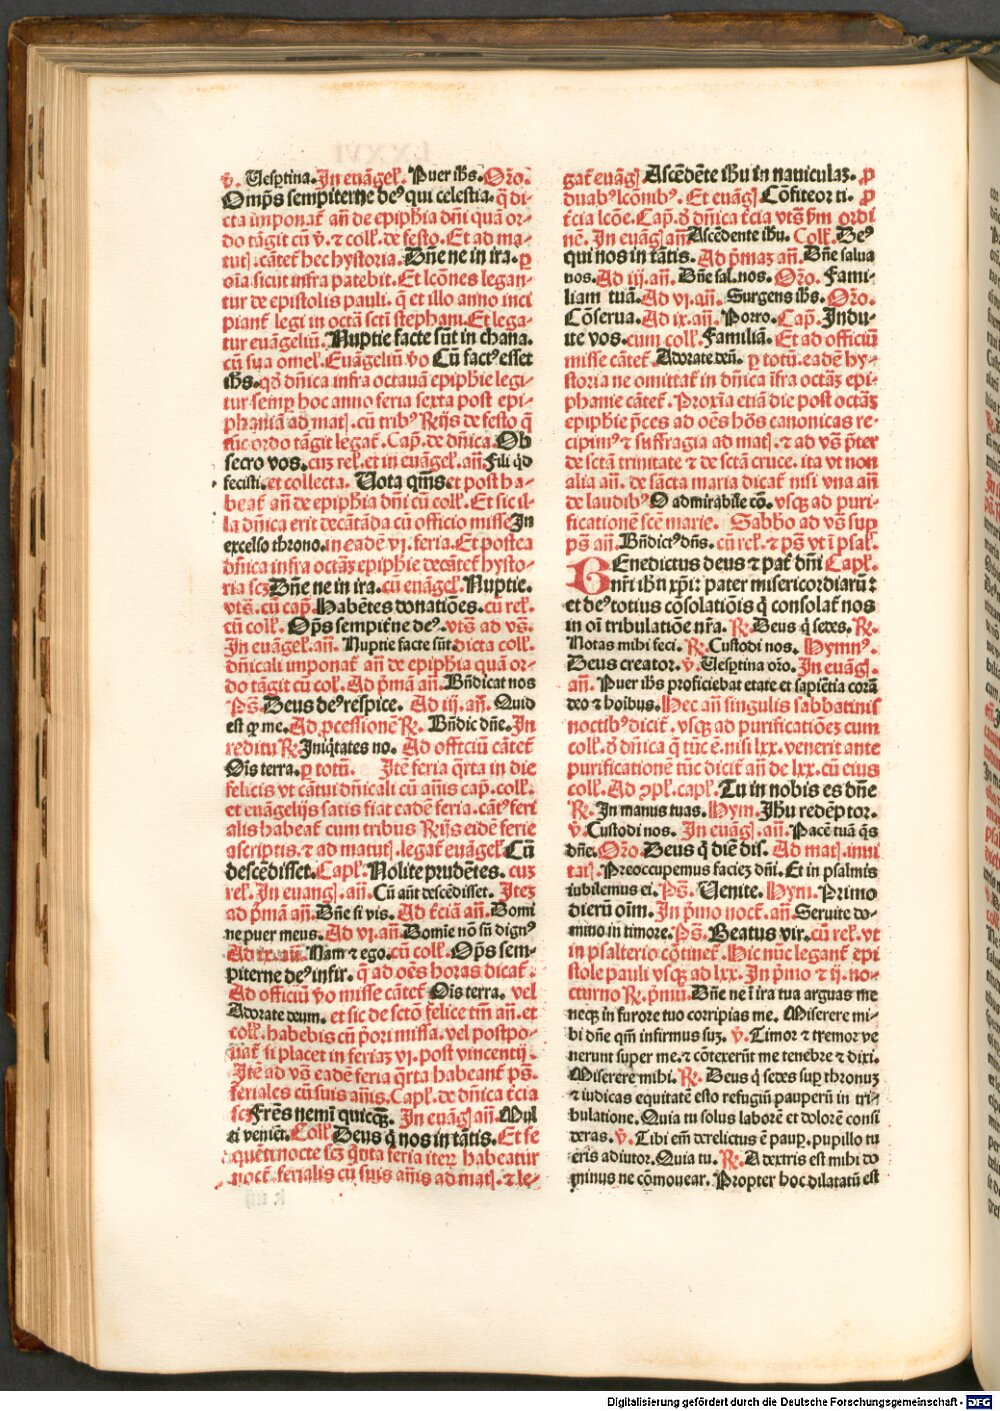 v̄. Uesꝑtina. In euāgeł. Puer ih̄s. Or̄o.
Om̄ps sempiterne deꝰ qui celestia. q̄ di⸗
cta imponat̄ añ de epiph̄ia dñi quā or⸗
do tāgit cū v̄. ⁊ coll̄. de festo. Et ad ma⸗
tuť. cātet̄ hec hystoria. Dñe ne in ira. ꝑ
oīa sicut infra patebit. Et lcōnes legan⸗
tur de epistolis pauli. q̄ et illo anno inci
piant̄ legi in octā sc̄ti steph̄ani. Et lega⸗
tur euāgeliū. Nuptie facte sūt in chana.
cū sua omeł. Euāgeliū v̄o Cū factꝰ esset
ih̄s. qđ dñica infra octauā epiphīe legi⸗
tur semꝑ hoc anno feria sexta post epi⸗
phaniā ad mať. cū tribꝰ R̄ijs de festo q̄
tūc ordo tāgit legat̄. Cap̄. de dñica. Ob
secro vos. cuꝫ reł. et in euāgeł. añ. Fili qđ
fecisti. et collecta. Uota qm̄s. et post ha⸗
beat̄ añ de epiph̄ia dñi cū coll̄. Et sic il⸗
la dñica erit decātāda cū officio misse In
excelso throno. in eadē vj. feria. Et postea
dñica infra octaꝫ epiphie decātet̄ hysto⸗
ria scꝫ Dñe ne in ira. cū euāgeł. Nuptie.
vt̄s. cū cap̄. Habētes donatiōes. cū reł.
cū coll̄. Op̄s sempit̄ne deꝰ. vt̄s ad vs̄.
In euāgeł. añ. Nuptie facte sūt dicta coll̄.
dñicali imponat̄ añ de epiph̄ia quā or⸗
do tāgit cū col̄. Ad p̄mā añ. Bn̄dicat nos
Ps̄. Deus deꝰ respice. Ad iij. añ. Quid
est ꝙ me. Ad ꝓcessionē R̄. Bn̄dic dñe. In
reditu R̄ Iniq̄tates no. Ad officiū cātet̄
Oīs terra. ꝑ totū. Itē feria q̄rta in die
felicis vt cātui dñicali cū añis cap̄. coll̄.
et euāgelijs satis fiat eadē feria. cāt̄ꝰ feri
alis habeat̄ cum tribus R̄ijs eidē ferie
ascriptis. ⁊ ad matuť. legat̄ euāgeł. Cū
descēdisset. Capł. Nolite prudētes. cuꝫ
reł. In euangł. añ. Cū aūt descēdisset. Iteꝫ
ad p̄mā añ. Dñe si vis. Ad t̄ciā añ. Domi
ne puer meus. Ad vj. añ. Domīe nō sū dignꝰ
Ad ix. añ. Nam ⁊ ego. cū coll̄. Op̄s sem⸗
piterne deꝰ infir. q̄ ad oēs horas dicat̄.
Ad officiū v̄o misse cātet̄ Oīs terra. vel
Adorate deum. et sic de sctō felice tm̄ añ. et
coll̄. habebis cū p̄ori missa. vel postpo⸗
nat̄ si placet in feriaꝫ vj. post vincentij.
Itē ad vs̄ eadē feria q̄rta habeant̄ ps̄.
feriales cū suis añis. Capł. de dñica t̄cia
scꝫ Frēs nemī quicꝗ. In euāgł añ. Mul
ti veniēt. Coll̄. Deus q̄ nos in tātis. Et se
quēti nocte scꝫ q̄nta feria iteꝝ habeātur
noct̄. ferialis cū suis añis ad mať. ⁊ le⸗
gat̄ euāgł Ascēdēte ih̄u in nauiculaꝫ. ꝓ
duabꝰ lcōnibꝰ. Et euāgł Cōfiteor ti. ꝓ
t̄cia lcōe. Cap̄. đ dñica t̄cia vt̄s ẜm ordi
nē. In euāgł añ Ascēdente ih̄u. Coll̄. Deꝰ
qui nos in tātis. Ad p̄maꝫ añ. Dñe salua
nos. Ad iij. añ. Dñe sal. nos. Or̄o. Fami⸗
liam tuā. Ad vj. añ. Surgens ih̄s. Or̄o.
Cōserua. Ad ix. añ. Porro. Cap̄. Indu⸗
ite vos. cum coll̄. Familiā. Et ad officiū
misse cātet̄ Adorate deū. ꝑ totū. eadē hy⸗
storia ne omittat̄ in dñica īfra octaꝫ epi⸗
phanie cātet̄. Proxīa etiā die post octaꝫ
epiphie p̄ces ad oēs hōs canonicas re⸗
cipimꝰ ⁊ suffragia ad mať. ⁊ ad vs̄ p̄ter
de sctā trinitate ⁊ de sctā cruce. ita vt non
alia añ. de sācta maria dicat̄ nisi vna añ
de laudibꝰ O admirabile cō. vsꝗ ad puri⸗
ficationē sc̄e marie. Sabb̄o ad vs̄ suꝑ
ps̄ añ. Bn̄dictꝰ dñs. cū reł. ⁊ ps̄ vt ī psał.
BEnedictus deus ⁊ pat̄ dñi Capł.
nr̄i ih̄u xp̄i: pater misericordiarū:
et deꝰ totius cōsolatiōis q̄ consolat̄ nos
in oī tribulatiōe nr̄a. R̄. Deus q̄ sedes. R̄.
Notas mihi feci. R̄. Custodi nos. Hymnꝰ.
Deus creator. v̄. Uesꝑtina or̄o. In euāgł.
añ. Puer ih̄s proficiebat etate et sapiētia corā
deo ⁊ hoībus. Hec añ singulis sabbatinis
noctibꝰ dicit̄. vsꝗ ad purificatiōeꝫ cum
coll̄. đ dñica q̄ tūc ē. nisi lxx. venerit ante
purificationē tūc dicit̄ añ de lxx. cū eius
coll̄. Ad ꝯpł. capł. Tu in nobis es dñe
R̄. In manus tuas. Hym. Ih̄u redēptor.
v̄. Custodi nos. In euāgł. añ. Pacē tuā q̄s
dñe. Or̄o. Deus q̄ diē dis. Ad mať. inui
tať. Preoccupemus facieꝫ dñi. Et in psalmis
iubilemus ei. Ps̄. Uenite. Hym. Primo
dierū oīm. In p̄mo noct̄. añ. Seruite do⸗
mino in timore. Ps̄. Beatus vir. cū reł. vt
in psalterio cōtinet̄. Hic nūc legant̄ epi
stole pauli vsꝗ ad lxx. In p̄mio ⁊ ij. no⸗
cturno R̄. p̄miū. Dñe ne ī ira tua arguas me
neꝗ in furore tuo corripias me. Miserere mi⸗
hi dñe qm̄ infirmus suꝫ. v̄. Timor ⁊ tremor ve
nerunt super me. ⁊ cōtexerūt me tenebre ⁊ dixi.
Miserere mihi. R̄. Deus q̄ sedes suꝑ thronuꝫ
⁊ iudicas equitatē esto refugiū pauperū in tri⸗
bulatione. Quia tu solus laborē et dolorē consi
deras. v̄. Tibi em̄ derelictus ē pauꝑ. pupillo tu
eris adiutor. Quia tu. R̄. A dextris est mihi do
minus ne cōmouear. Propter hoc dilatatū est
Digitalisierung gefördert durch die Deutsche Forschungsgemeinschaft - DFG